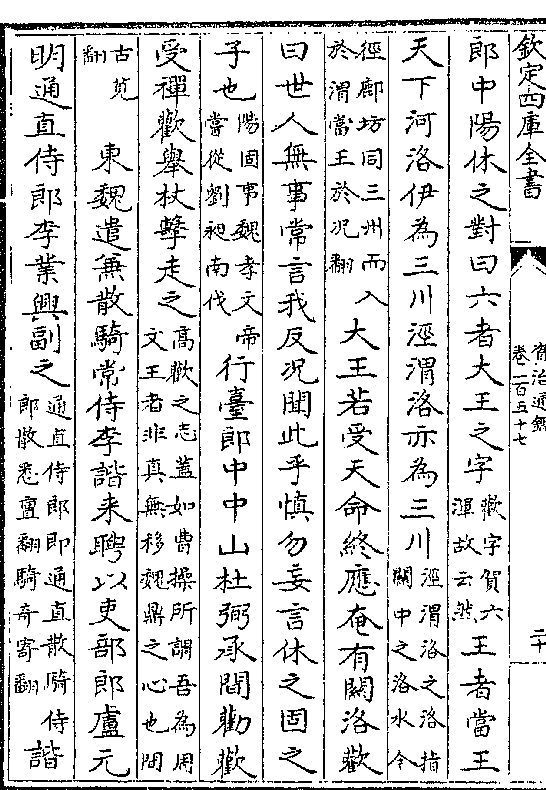 欽定四庫全書
資治通鑑
卷一百五十七
二十
郎中陽休之對曰六者大王之字歡字賀六渾故云然王者當王
天下河洛伊為三川涇渭洛亦為三川涇渭洛之洛指關中之洛水今
徑鄜坊同三州而入於渭當王於况翻大王若受天命終應奄有關洛歡
曰世人無事常言我反况聞此乎慎勿妄言休之固之
子也陽固事魏孝文帝嘗從劉昶南伐行臺郎中中山杜弼承間勸歡
受禪歡舉杖擊走之高歡之志蓋如曹操所謂吾為周文王者非真無移魏鼎之心也間
古莧翻東魏遣兼散騎常侍李諧来聘以吏部郎盧元
明通直侍郎李業興副之通直侍郎即通直散騎侍郎散悉亶翻騎奇寄翻諧